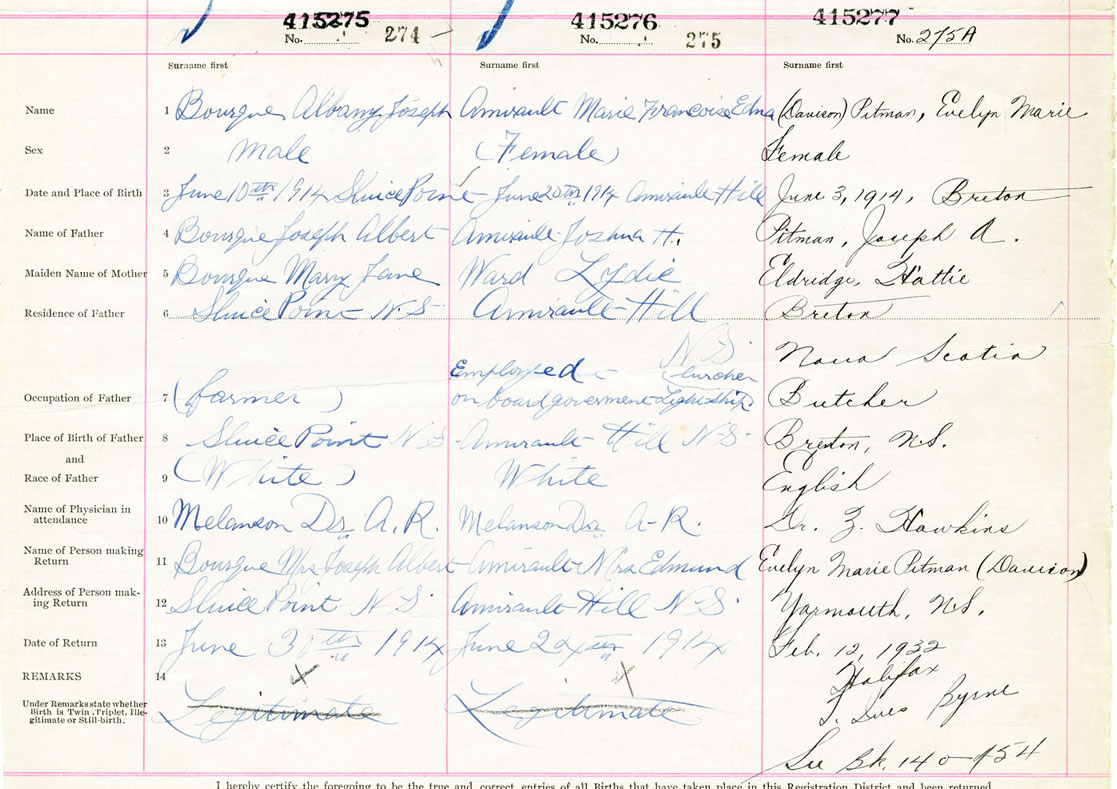 415275 415276 415277
No. 274 No. 275 No. 275A
Surname first Surname first Surname first
Name 1 Bourque Albany Joseph Amirault Marie Francoise Edna (Davison) Pitman, Evelyn Marie
Sex 2 male (Female) Female
Date and Place of Birth 3 June 10th 1914 Sluice Point June 20th 1914 Amirault Hill June 3, 1914, Breton
Name of Father 4 Bourque Joseph Albert Amirault Joshua H. Pitman, Joseph A.
Maiden Name of Mother 5 Bourque Mary Jane Ward Lydie Eldridge, Hattie
Residence of Father 6 Sluice Point N.S. Amirault Hill Breton
N.S. Nova Scotia
Employed
Occupation of Father 7 (farmer) on board goverment Light ship Butcher
Place of Birth of Father 8 Sluice Point N.S. Amirault Hill N.S. Breton, N.S.
and
Race of Father 9 (White) White English
Name of Physician in
attendance 10 Melanson Dr. A. R. Melanson Dr. A-R. Dr. Z. Hawkins
Name of Person making
Return 11 Bourque Mrs Joseph Albert Amirault Mrs Edmund Evelyn Marie Pitman (Davison)
Address of Person mak-
ing Return 12 Sluice Point N.S. Amirault Hill N.S. Yarmouth, N.S.
Date of Return 13 June 30th 1914 June 24th 1914 Feb. 12, 1932
REMARKS 14 Halifax
Under Remarks state whether
Birth is Twin, Triplet, Ille-
gitimate or Still-birth. Legitimate Legitimate Byrne
See Bk. 140
I hereby certify the foregoing to be the true and correct entries of all Births that have taken place in this Registration District and been returned